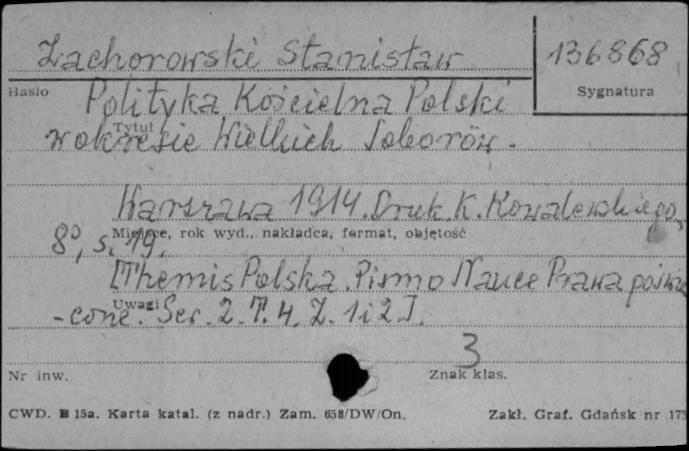 Zachorowski Stanisław
136868
Hasło
Sygnatura
Polityka Kościelna Polski
Tytuł
w okresie Wielkich Soborów.
Warszawa 1914. Druk. K. Kowalewskiego,
Miejsce, rok wyd., nakładca, format, objętość
8°, s. 19.
[Themis Polska. Pismo Nauce Prawa poświę
Uwagi
-cone. Ser. 2. T. 4. Z. 1 i 2].
3
Nr inw.
Znak klas.
CWD. B 15a. Karta katal. (z nadr.) Zam. 658/DW/On.
Zakł. Graf. Gdańsk nr 175